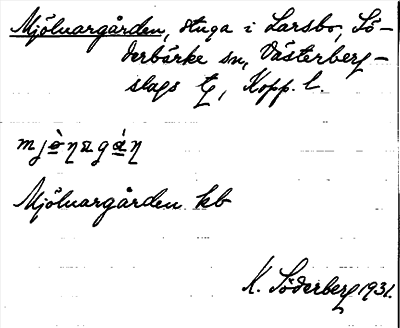 Mjölnargården, stuga i Larsbo, Sö-
derbärke sn, Västerberg-
slags tg, Kopp. l.
Mjölnargården kb
K. Söderberg 1931.